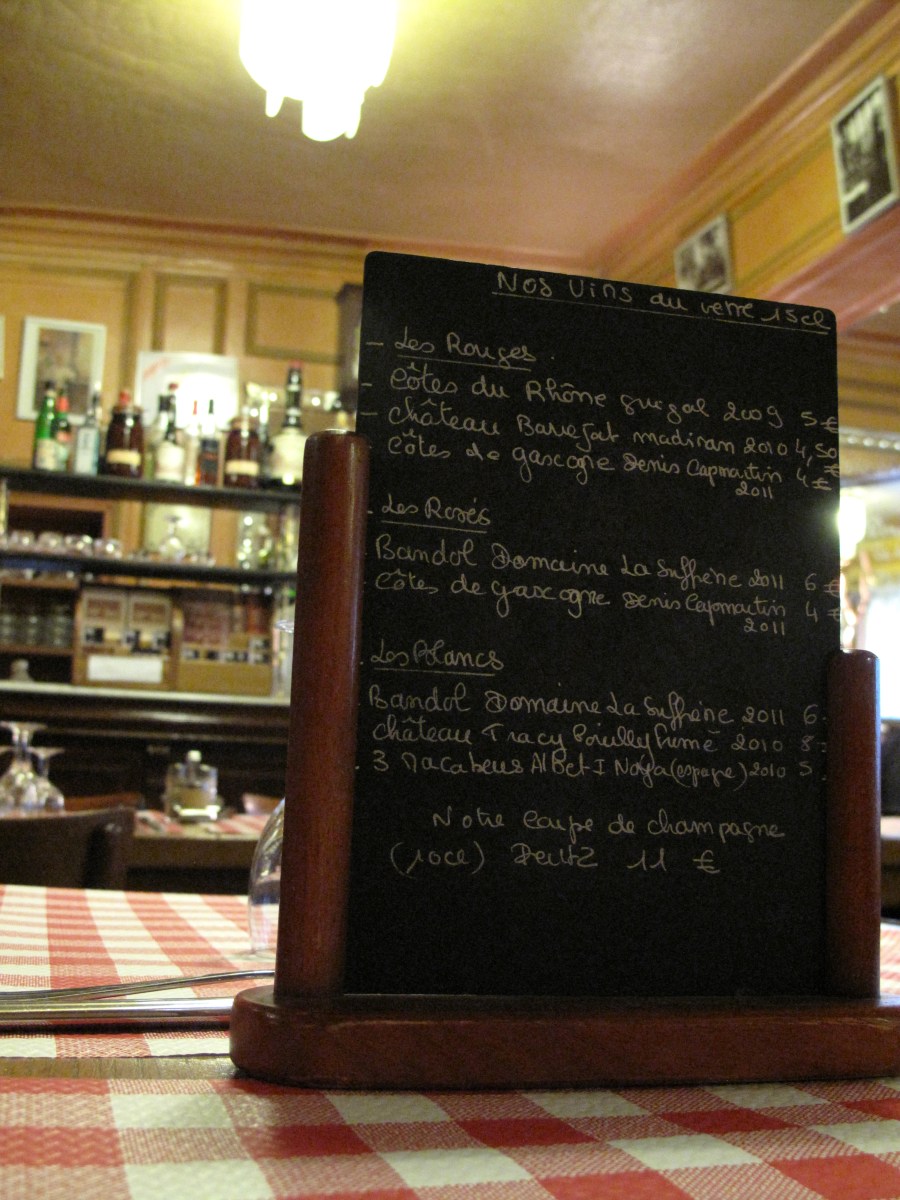 Nos Vins du verre 15cl
- Les Rouges.
- Côtes du Rhône guigal 2009 5 €
- château Barrejat madiran 2010 4,50 €
côtes de gascogne Denis Capmartin 4 €
2011
- Les Rosés
Bandol Domaine La Suffrène 2011 6 €
côtes de gascogne Denis Capmartin 4 €
2011
. Les Blancs
Bandol Domaine La Suffrène 2011 6
château Tracy Pouilly fumé 2010 8
. 3 Macabeus Albet I Noya (espagne) 2010 5
Notre coupe de champagne
(10cl) Deutz 11 €